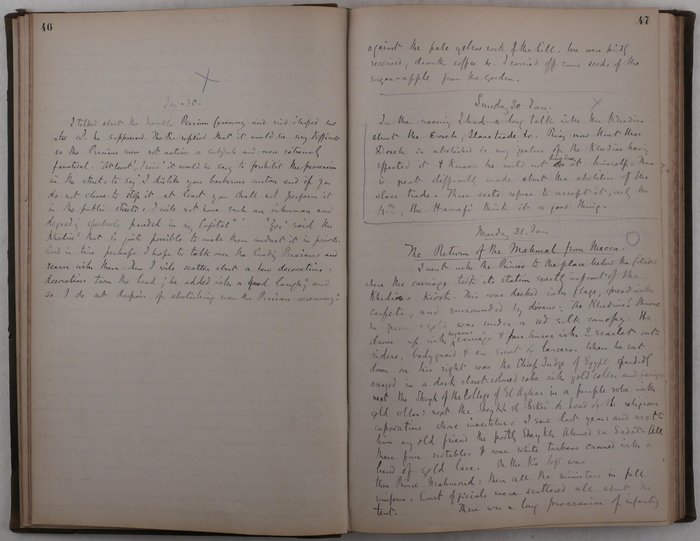 46
Jan. 30.
I talked about the horrible Persian ceremony and said I hoped not
to see it. he supposed. The Kh. replied that it would be very difficult
as the Persians were not natives or subjects and were extremely
fanatical. "At least", I said "it would be easy to prohibit the procession
in the streets, to say 'I dislike your barbarous custom and if you
do not choose to stop it at least you shall not perform it
in the public streets, I will not have such an inhuman and
degrading spectacle paraded in my Capital'" "Yes" said the
Khedive "that is quite possible to make them conduct it in private.
And in time perhaps I hope to talk over the leading Persians and
reason with them. Then I will scatter about a few decorations,
decorations turn the head", he added with a good laugh, "and
so I do not despair of abolishing even the Persian ceremony."
47
against the pale yellow rock of the hill. We were kindly
received, drank coffee & I carried off some seeds of the
sugar-apple from the garden.
Sunday 30 Jan.
In the morning I had a long talk with the Khedive
about the Slave trade &c.
is abolished is very jealous of the Khedive having
effected it & knows he could not have done it himself. There
is great difficulty made about the abolition of the
slave trade. Three sects refuse to accept it, only the
4th, the Hanafi think it a good thing.
Monday 31 Jan.
The Return of the Mahmal from Mecca.
I went with the Princes to the place below the Citadel
where the carriage took its station exactly in front of the
Khedive's Kiosk. This was decked with flags, spread with
carpets, and surrounded by divans. The Khedive's throne
in green & gold was under a red silk canopy. He
drove up with carriage & four horses with 2 scarlet out-
riders, bodyguard & an escort of lancers. When he sat
down on his right was the Chief Judge of Egypt, splendidly
arrayed in a dark claret coloured robe with gold collar and
next the Sheykh of the College of El Azhar in a purple robe with
gold collar: next the Sheykh el Bekri & head of the religious
corporations whose investiture I saw last year: and next to
him my old friend the portly Sheykh Ahmed es Sadat. All
these four notables wore white turbans crossed with a
band of gold lace. On the Kh. left was
then Prince Mahmoud: then all the ministers in full
uniform. Court officials were scattered all about the
tent. There was a long procession of infantry